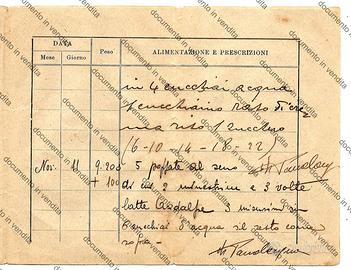 DATA
Mese Giorno Peso ALIMENTAZIONE E PRESCRIZIONI
in 4 cucchiai acqua
1 cucchiaino raso di cre
ma riso 1 zucchero
(6-10-14-18-22)
Nov. 11 9.200 5 poppate al seno
+ 100 di cui 2 minestrine e 3 volte
latte 3 misurini in
cucchiai d'acqua il resto come
sopra -
documento in vendita